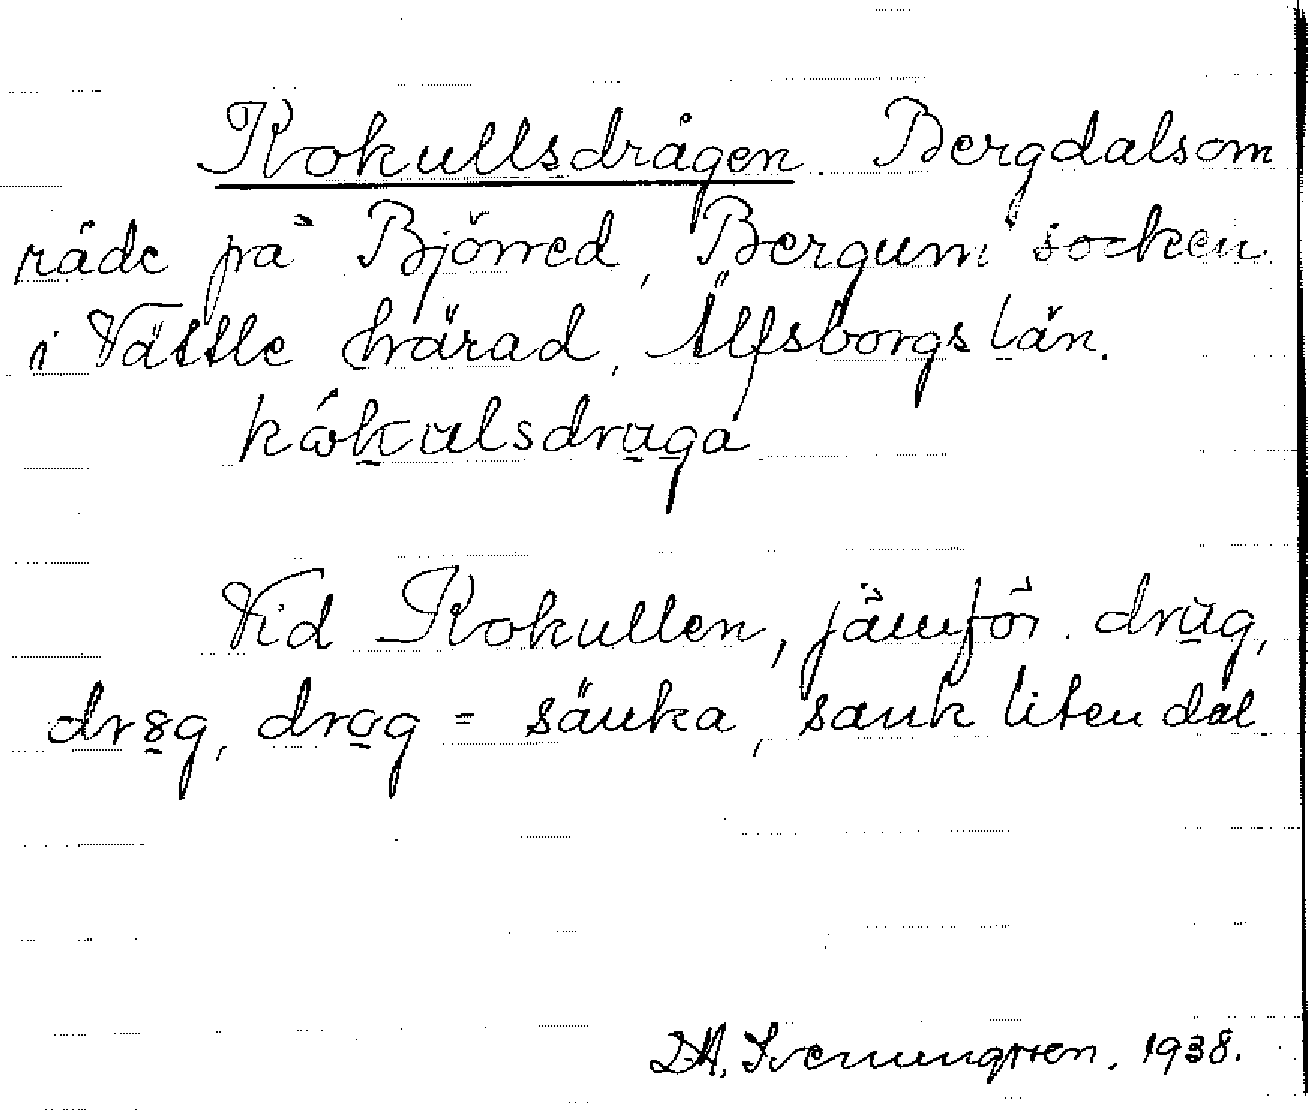 Kokullsdrågen. Bergdalsom
råde på Björred, Bergum socken
i Vättle härad, Älfsborgs län.
Vid Kokullen, jämför. drug,
drög, drog = sänka, sank liten dal.
D.A. Svenungsson. 1938.